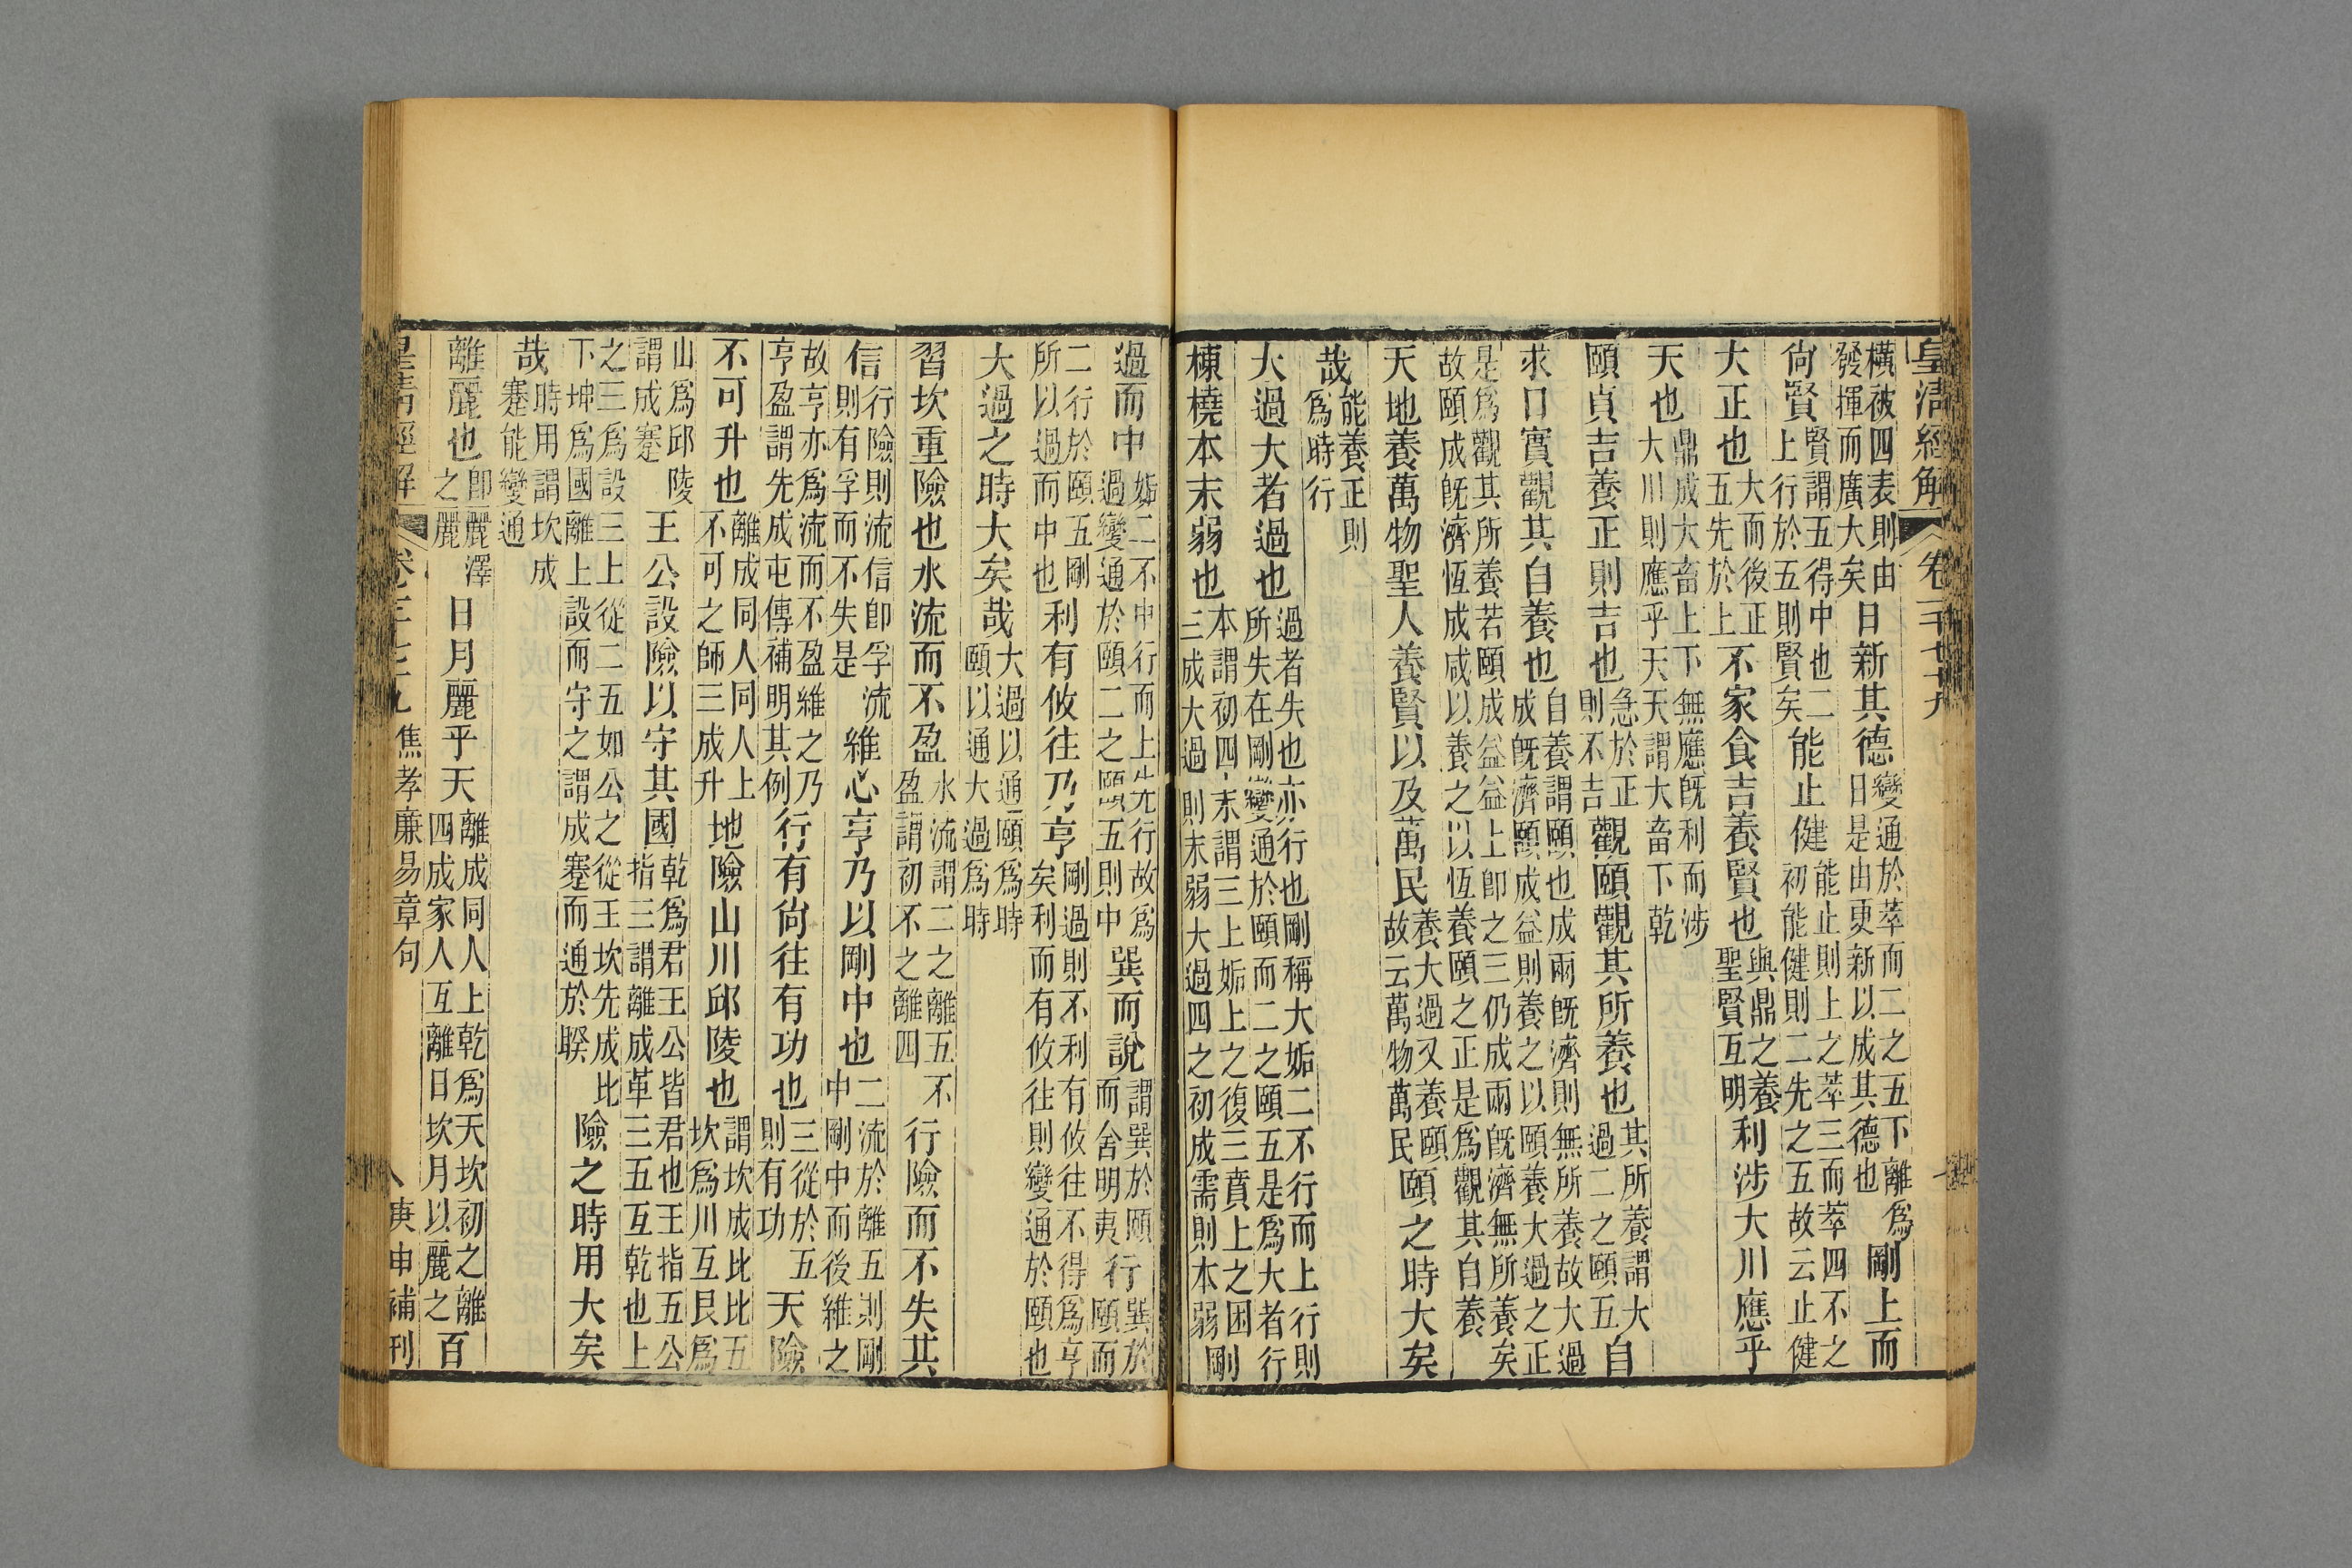 皇清經解 卷一千七十九
橫被四表則由
發揮而廣大矣
日新其德
變通於萃而二之五下離爲
日是由更新以成其德也
剛上而
尙賢
賢謂五得中也二
上行於五則賢矣
能止健
能止則上之萃三而萃四不之
初能健則二先之五故云止健
大正也
大而後正
五先於上
不家食吉養賢也
與鼎之養
聖賢互明
利涉大川應乎
天也
鼎成大畜上下無應旣利而涉
大川則應乎天天謂大畜下乾
頤貞吉養正則吉也
急於正
則不吉
觀頤觀其所養也
其所養謂大
過二之頤五
自
求口實觀其自養也
自養謂頤也成兩旣濟則無所養故大過
成旣濟頤成益則養之以頤養大過之正
是爲觀其所養若頤成益益上卽之三仍成兩旣濟無所養矣
故頤成旣濟恆成咸以養之以恆養頤之正是爲觀其自養
天地養萬物聖人養賢以及萬民
養大過又養頤
故云萬物萬民
頤之時大矣
哉
能養正則
爲時行
大過大者過也
過者失也亦行也剛稱大姤二不行而上行則
所失在剛變通於頤而二之頤五是爲大者行
棟橈本末弱也
本謂初四末謂三上姤上之復三賁上之困
三成大過則末弱大過四之初成需則本弱
剛
過而中
姤二不中行而上先行故爲
過變通於頤二之頤五則中
巽而說
謂巽於頤
而舍明夷
行
巽於
頤而
二行於頤五剛
所以過而中也
利有攸往乃亨
剛過則不利有攸往不得爲亨
矣利而有攸往則變通於頤也
大過之時大矣哉
大過以通頤爲時
頤以通大過爲時
習坎重險也水流而不盈
水流謂二之離五不
盈謂初不之離四
行險而不失其
信
行險則流信卽孚流
則有孚而不失是
維心亨乃以剛中也
二流於離五則剛
中剛中而後維之
故亨亦爲流而不盈維之乃
亨盈謂先成屯傳補明其例
行有尙往有功也
三從於五
則有功
天險
不可升也
離成同人同人上
不可之師三成升
地險山川邱陵也
謂坎成比比五
坎爲川互艮爲
山爲邱陵
謂成蹇
王公設險以守其國
乾爲君王公皆君也王指五公
指三謂離成革三五互乾也上
之三爲設三上從二五如公之從王坎先成比
下坤爲國離上設而守之謂成蹇而通於睽
險之時用大矣
哉
時用謂坎成
蹇能變通
離麗也
卽麗澤
之麗
日月麗乎天
離成同人上乾爲天坎初之離
四成家人互離日坎月以麗之
百
皇清經解 卷一千七十九 焦孝廉易章句 八 庚申補刊